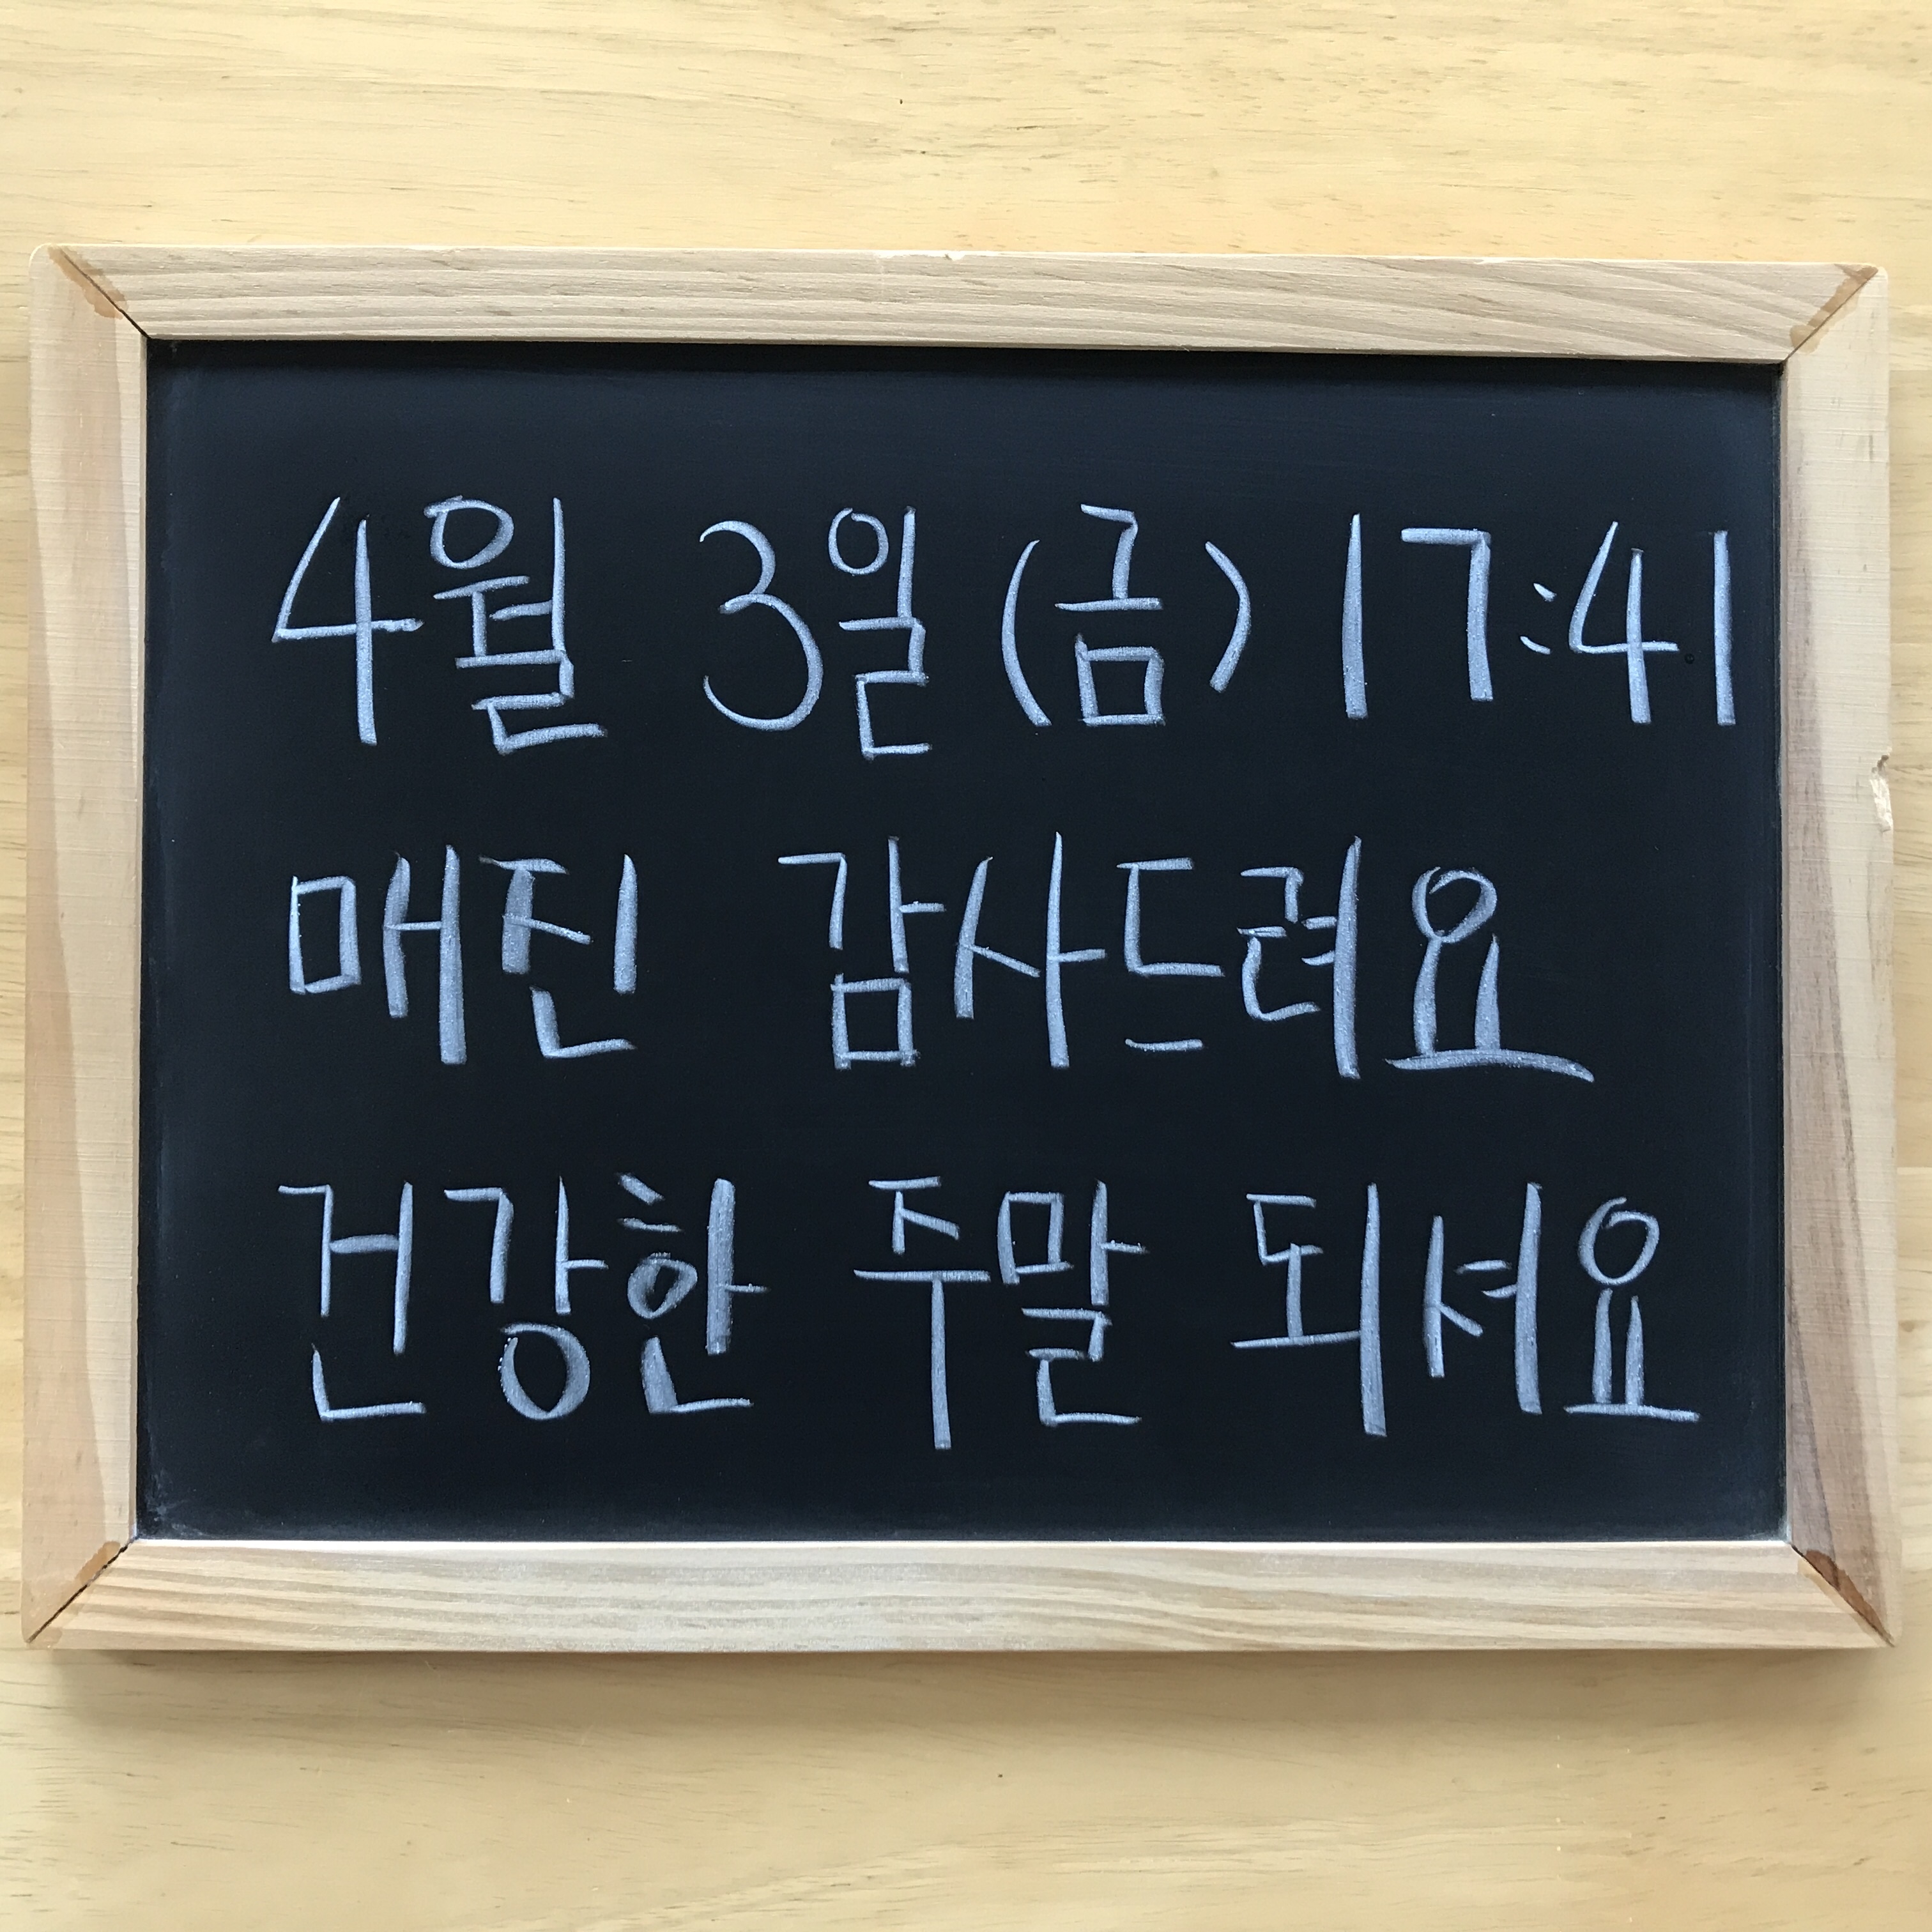 4월 3일(금) 17:41
매진 감사드려요
건강한 주말 되셔요